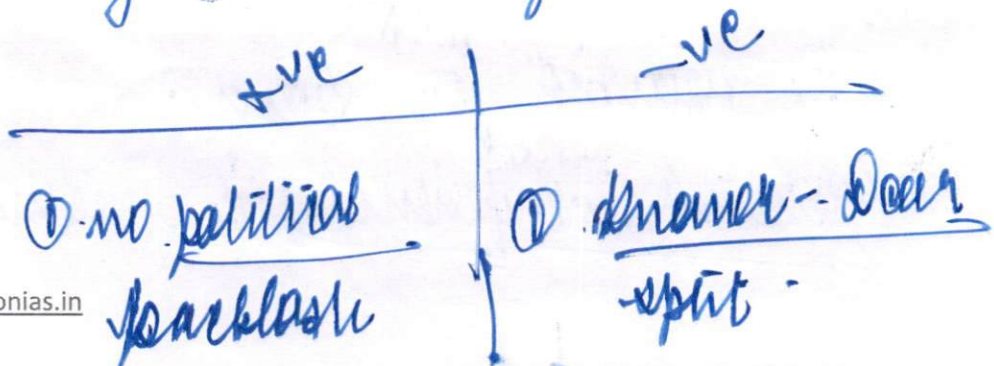 +ve
-ve
① no political backlash
① Knower - Doer split
onias.in